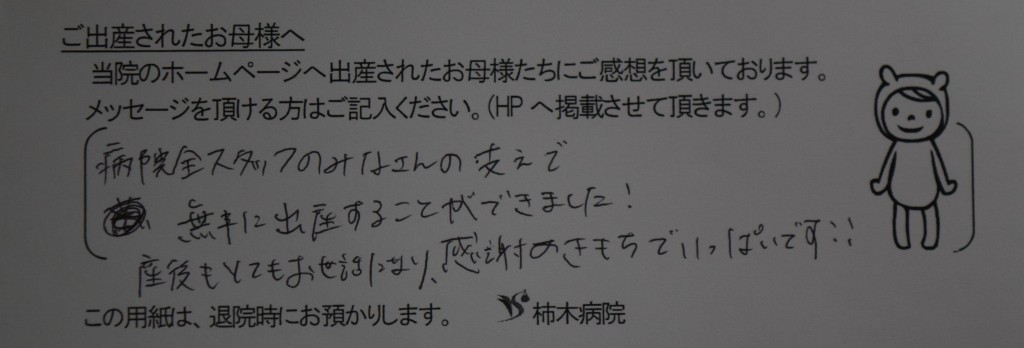 ご出産されたお母様へ
当院のホームページへ出産されたお母様たちにご感想を頂いております。
メッセージを頂ける方はご記入ください。(HPへ掲載させて頂きます。)
病院全スタッフのみなさんの支えで
無事に出産することができました!
産後もとてもお世話になり、感謝のきもちでいっぱいです!!
この用紙は、退院時にお預かりします。 柿木病院